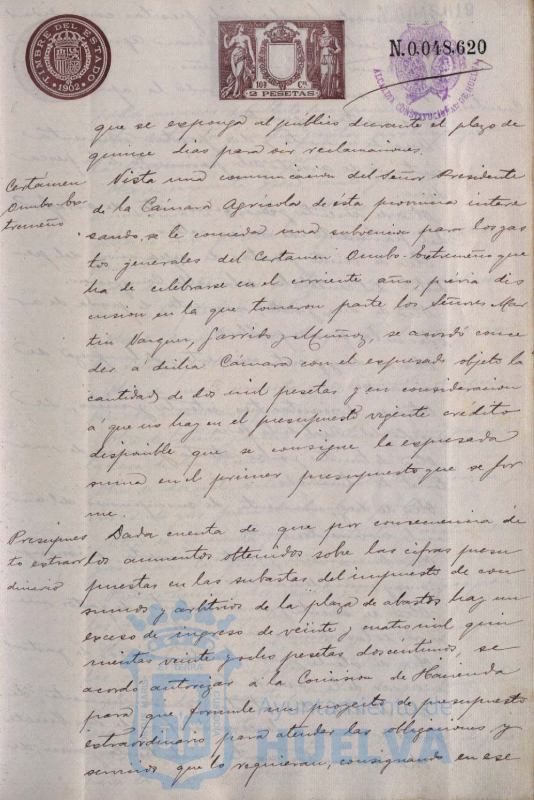 TIMBRE DEL ESTADO
1902
100 Cs.
2 PESETAS
N.0.048.620
ALCALDIA CONSTITUCIONAL DE HUELVA
que se exponga al público durante el plazo de
quince dias para oir reclamaciones.
Certámen
Onubo-Ex-
tremeño
Vista una comunicacion del Señor Presidente
de la Cámara Agrícola de ésta provincia intere
sando se le conceda una subvencion para los gas
tos generales del Certamen Onubo-Extremeño que
ha de celebrarse en el corriente año, prévia dis
cusion en la que tomaron parte los Señores Mar
tin Vazquez, Garrido y Muñoz, se acordó conce
der a dicha Cámara con el expresado objeto la
cantidad de dos mil pesetas y en consideracion
á que no hay en el presupuesto vigente crédito
disponible que se consigne la expresada
suma en el primer presupuesto que se for
me.
Presupues
to extraor
dinario
Dada cuenta de que por consecuencia de
los aumentos obtenidos sobre las cifras presu
puestas en las subastas del impuesto de con
sumos y arbitrios de la plaza de abastos hay un
exceso de ingreso de veinte y cuatro mil quin
nientas veinte y ocho pesetas dos centimos, se
acordó autorizar a la Comision de Hacienda
para que formule un proyecto de presupuesto
extraordinario para atender las obligaciones y
servicios que lo requieran, consignando en ese
Ayuntamiento de
HUELVA